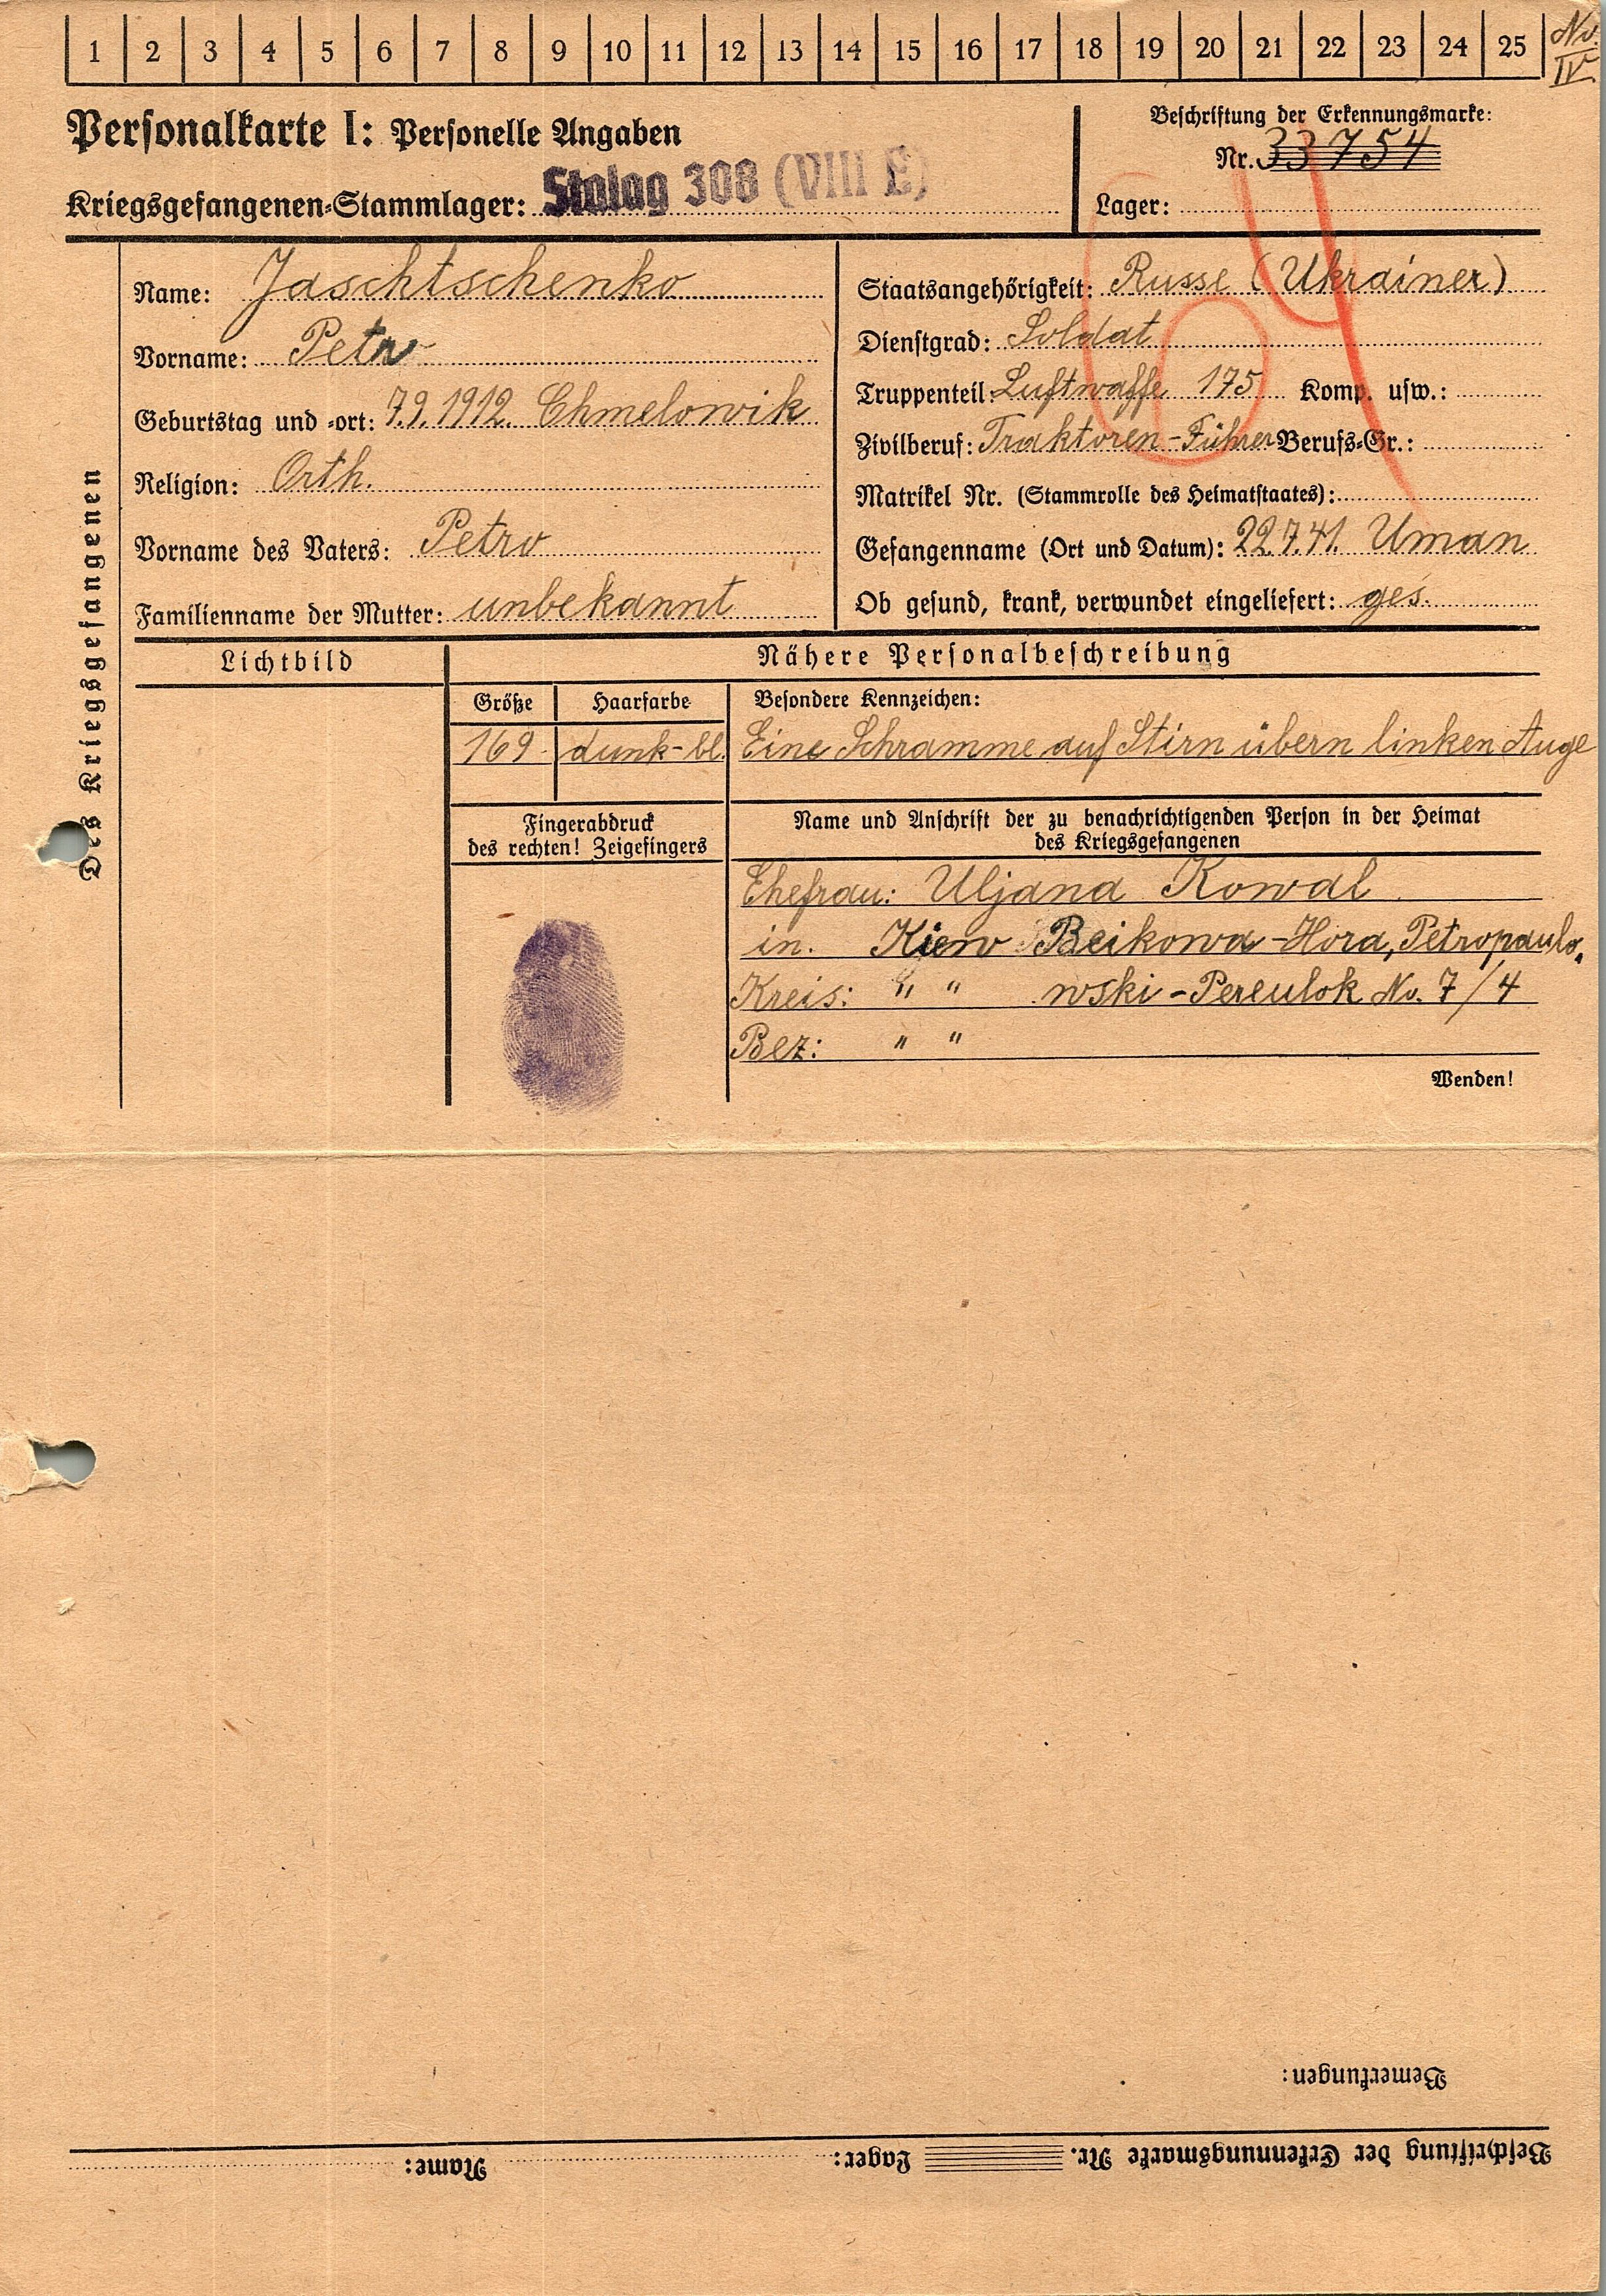 1 2 3 4 5 6 7 8 9 10 11 12 13 14 15 16 17 18 19 20 21 22 23 24 25
No. IV.
Personalkarte I: Personelle Angaben
Kriegsgefangenen-Stammlager: Stalag 308 (VIII E)
Beschriftung der Erkennungsmarke:
Nr. 33754
Lager:
Des Kriegsgefangenen
Name: Jaschtschenko
Vorname: Petro
Geburtstag und -ort: 7.9.1912. Chmelowik
Religion: Orth.
Vorname des Vaters: Petro
Familienname der Mutter: unbekannt
Staatsangehörigkeit: Russe (Ukrainer)
Dienstgrad: Soldat
Truppenteil: Luftwaffe 175 Komp. usw.:
Zivilberuf: Traktoren-Führer Berufs-Gr.:
Matrikel Nr. (Stammrolle des Heimatstaates):
Gefangenname (Ort und Datum): 22.7.41. Uman
Ob gesund, krank, verwundet eingeliefert: ges.
Lichtbild
Nähere Personalbeschreibung
Größe Haarfarbe Besondere Kennzeichen:
169 dunk-bl. Eine Schramme auf Stirn übern linken Auge
Fingerabdruck
des rechten! Zeigefingers
Name und Anschrift der zu benachrichtigenden Person in der Heimat
des Kriegsgefangenen
Ehefrau: Uljana Kowal
in. Kiew Beikowa-Hora, Petropaulo-
Kreis: " " wski-Pereulok No. 7/4
Bez: " "
Wenden!
Bemerkungen:
Beschriftung der Erkennungsmarke Nr. Lager: Name: